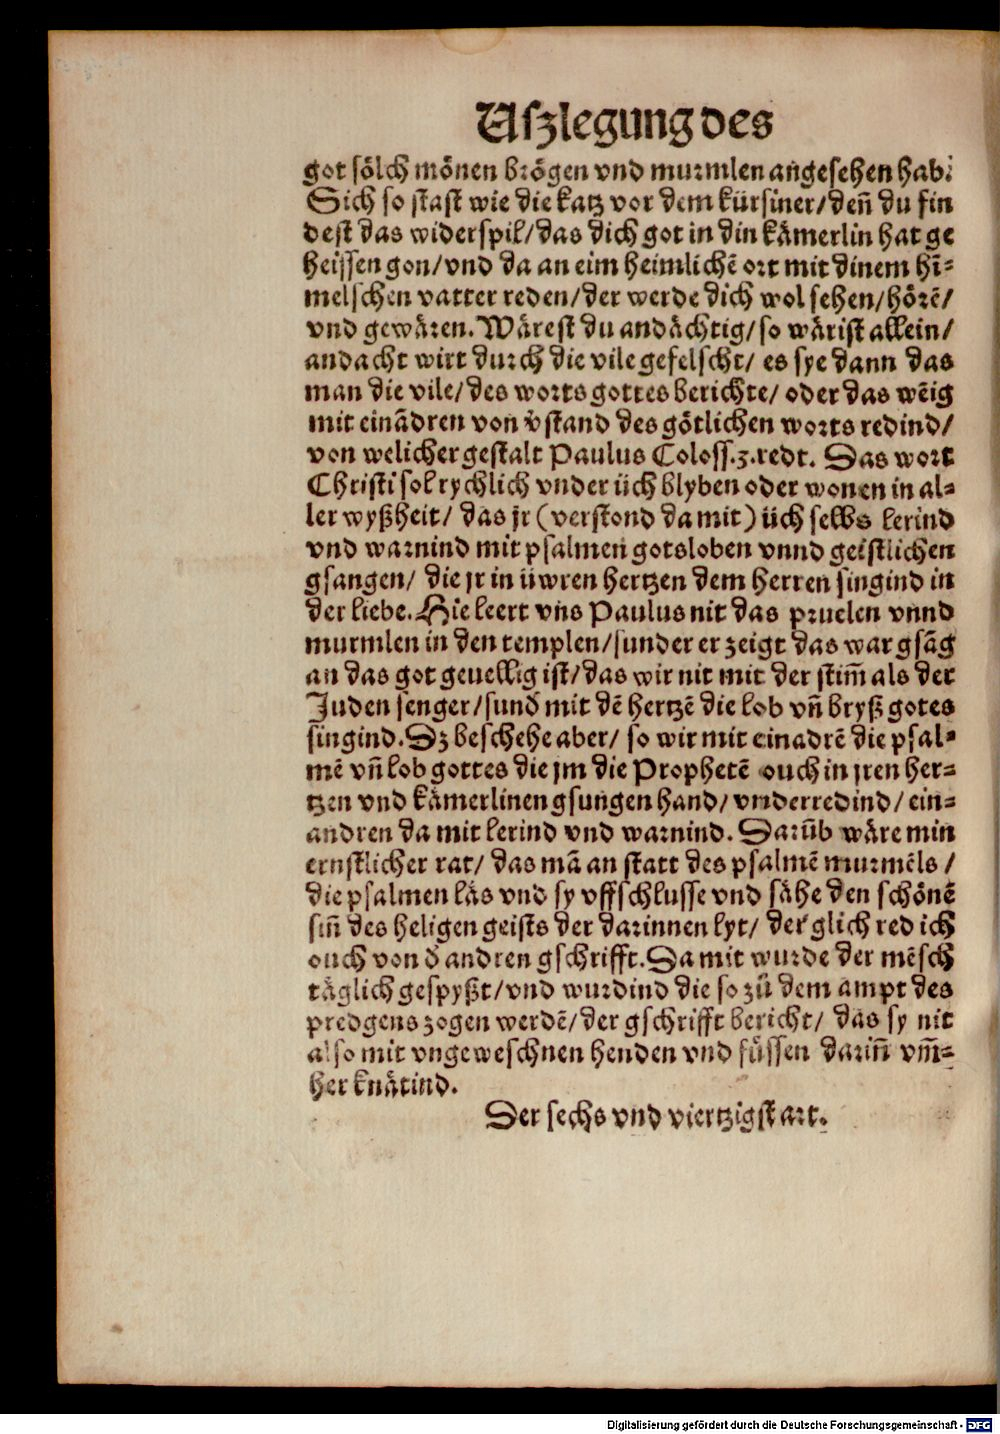 Uſzlegung des
got ſoͤlch moͤnen broͤgen vnd murmlen angeſehen hab:
Sich ſo ſtaſt wie die katz vor dem kürſiner/ deñ du fin
deſt das widerſpil/ das dich got in din kaͤmerlin hat ge
heiſſen gon/ vnd da an eim heimlichē ort mit dinem hī⸗
melſchen vatter reden/ der werde dich wol ſehen/ hoͤrē/
vnd gewaͤren. Waͤreſt du andaͤchtig/ ſo waͤriſt allein/
andacht wirt durch die vile gefelſcht/ es ſye dann das
man die vile/ des worts gottes berichte/ oder das wēig
mit einādren von v̊ſtand des goͤtlichen worts redind/
von welicher geſtalt Paulus Coloſſ.3.redt. Das wort
Chriſti ſol rychlich vnder üch blyben oder wonen in al⸗
ler wyßheit/ das jr (verſtond da mit) üch ſelbs lerind
vnd warnind mit pſalmen gotsloben vnnd geiſtlichen
gſangen/ die jr in üwren hertzen dem herren ſingind in
der liebe. Hie leert vns Paulus nit das pruelen vnnd
murmlen in den templen/ ſunder er zeigt das war gſāg
an das got geuellig iſt/ das wir nit mit der ſtim̄ als der
Juden ſenger/ ſund̓ mit dē hertzē die lob vñ bryß gotes
ſingind. Dz beſchehe aber/ ſo wir mit einadrē die pſal⸗
mē vñ lob gottes die jm die Prophetē ouch in jren her⸗
tzen vnd kaͤmerlinen gſungen hand/ vnderredind/ ein⸗
andren da mit lerind vnd warnind. Darūb waͤre min
ernſtlicher rat/ das mā an ſtatt des pſalmē murmēls /
die pſalmen laͤs vnd ſy vffſchluſſe vnd ſaͤhe den ſchoͤnē
ſiñ des heligen geiſts der darinnen lyt/ der glich red ich
ouch von d̓ andren gſchrifft. Da mit wurde der mēſch
taͤglich geſpyßt/ vnd wurdind die ſo zů dem ampt des
predgens zogen werdē/ der gſchrifft bericht/ das ſy nit
alſo mit vngeweſchnen henden vnd fuͤſſen dariñ vm̄⸗
her knaͤtind.
Der ſechs vnd viertzigſt art.
Digitalisierung gefördert durch die Deutsche Forschungsgemeinschaft - DFG